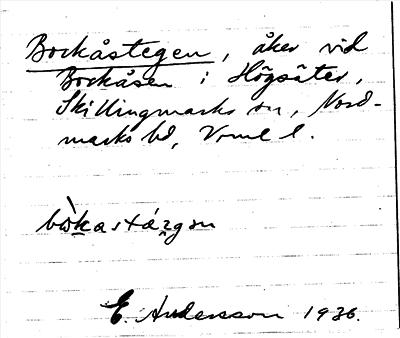 Bockåstegen, åker vid
Bockåsen i Högsäter,
Skillingmarks sn, Nord-
marks hd, Vrml l.
bò̀kastáŋgɘn
E. Andersson 1936.